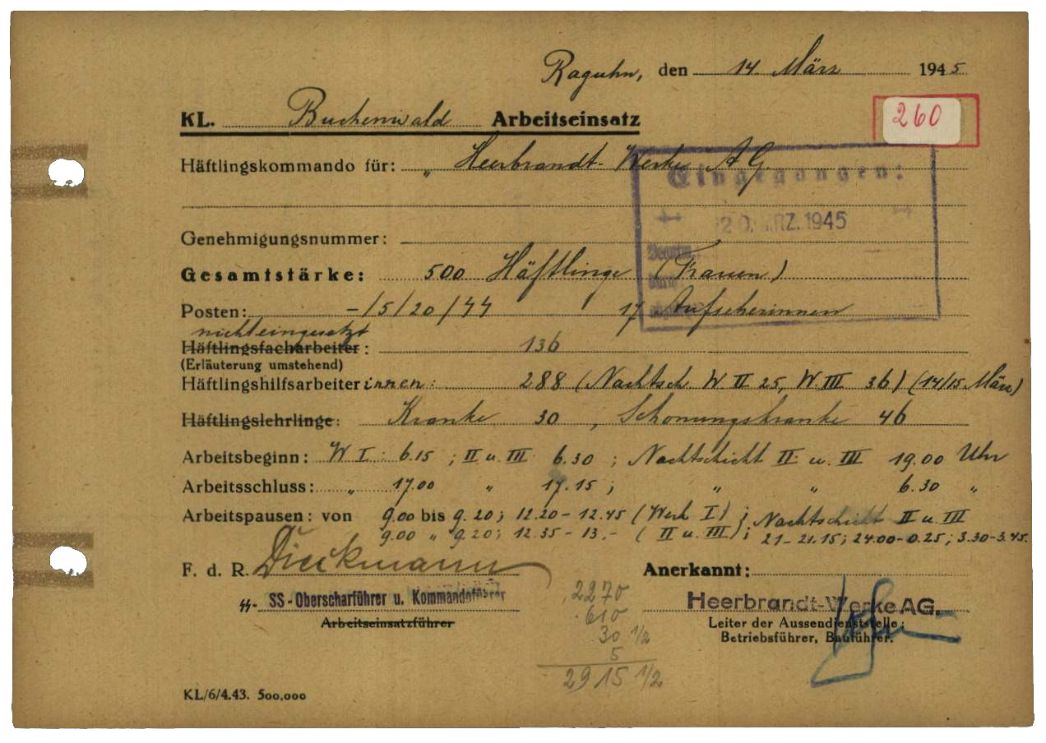 Raguhn, den 14. März 1945
KL. Buchenwald Arbeitseinsatz
260
Häftlingskommando für: „ Heerbrandt-Werke AG
Eingegangen:
20. MRZ. 1945
Genehmigungsnummer:
Gesamtstärke: 500 Häftlinge (Frauen)
Posten: -/5/20/44 17 Aufseherinnen
nichteingesetzt
Häftlingsfacharbeiter: 136
(Erläuterung umstehend)
Häftlingshilfsarbeiterinnen: 288 (Nachtsch. W II 25, W III 36) (14/15 März)
Häftlingslehrlinge: Kranke 30, Schonungskranke 46
Arbeitsbeginn: W I: 6.15; II u. III 6.30; Nachtschicht II u. III 19.00 Uhr
Arbeitsschluss: „ 17.00 „ 17.15; „ „ 6.30 „
Arbeitspausen: von 9.00 bis 9.20; 12.20-12.45 (Werk I); Nachtschicht II u. III
9.00 „ 9.20; 12.35-13.- (II u. III); 21-21.15; 24.00-0.25; 3.30-3.45.
F. d. R. Dieckmann
Anerkannt:
SS-Oberscharführer u. Kommandoführer
Heerbrandt-Werke AG.
Arbeitseinsatzführer
Leiter der Aussendienststelle:
Betriebsführer, Bauführer.
2270
610
30 1/2
5
2915 1/2
KL/6/4.43. 500.000